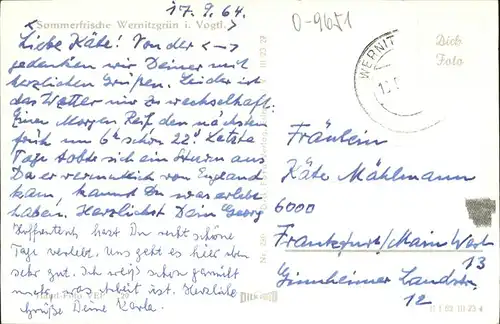 17.9.64.
0-9651
<Sommerfrische Wernitzgrün i. Vogtl.>
Liebe Käte! Von der <->
gedenken wir Deiner mit
herzlichen Grüßen. Leider ist
das Wetter nur zu wechselhaft:
Einen Morgen Reif, den nächsten
früh um 6h schon 22°. Letzte
Tage tobte sich ein Sturm aus
Da er vermutlich von England
kam, kannst Du was erlebt
haben. Herzlichst Dein Georg
Hoffentlich hast Du recht schöne
Tage verlebt. Uns geht es hier oben
sehr gut. Ich weiß schon garnicht
mehr, was Arbeit ist. Herzliche
Grüße Deine Karla.
WERNIT
Dick
Foto
Fräulein
Käte Mählmann
6000
Frankfurt/Main West
13
Ginnheimer Landstr.
12